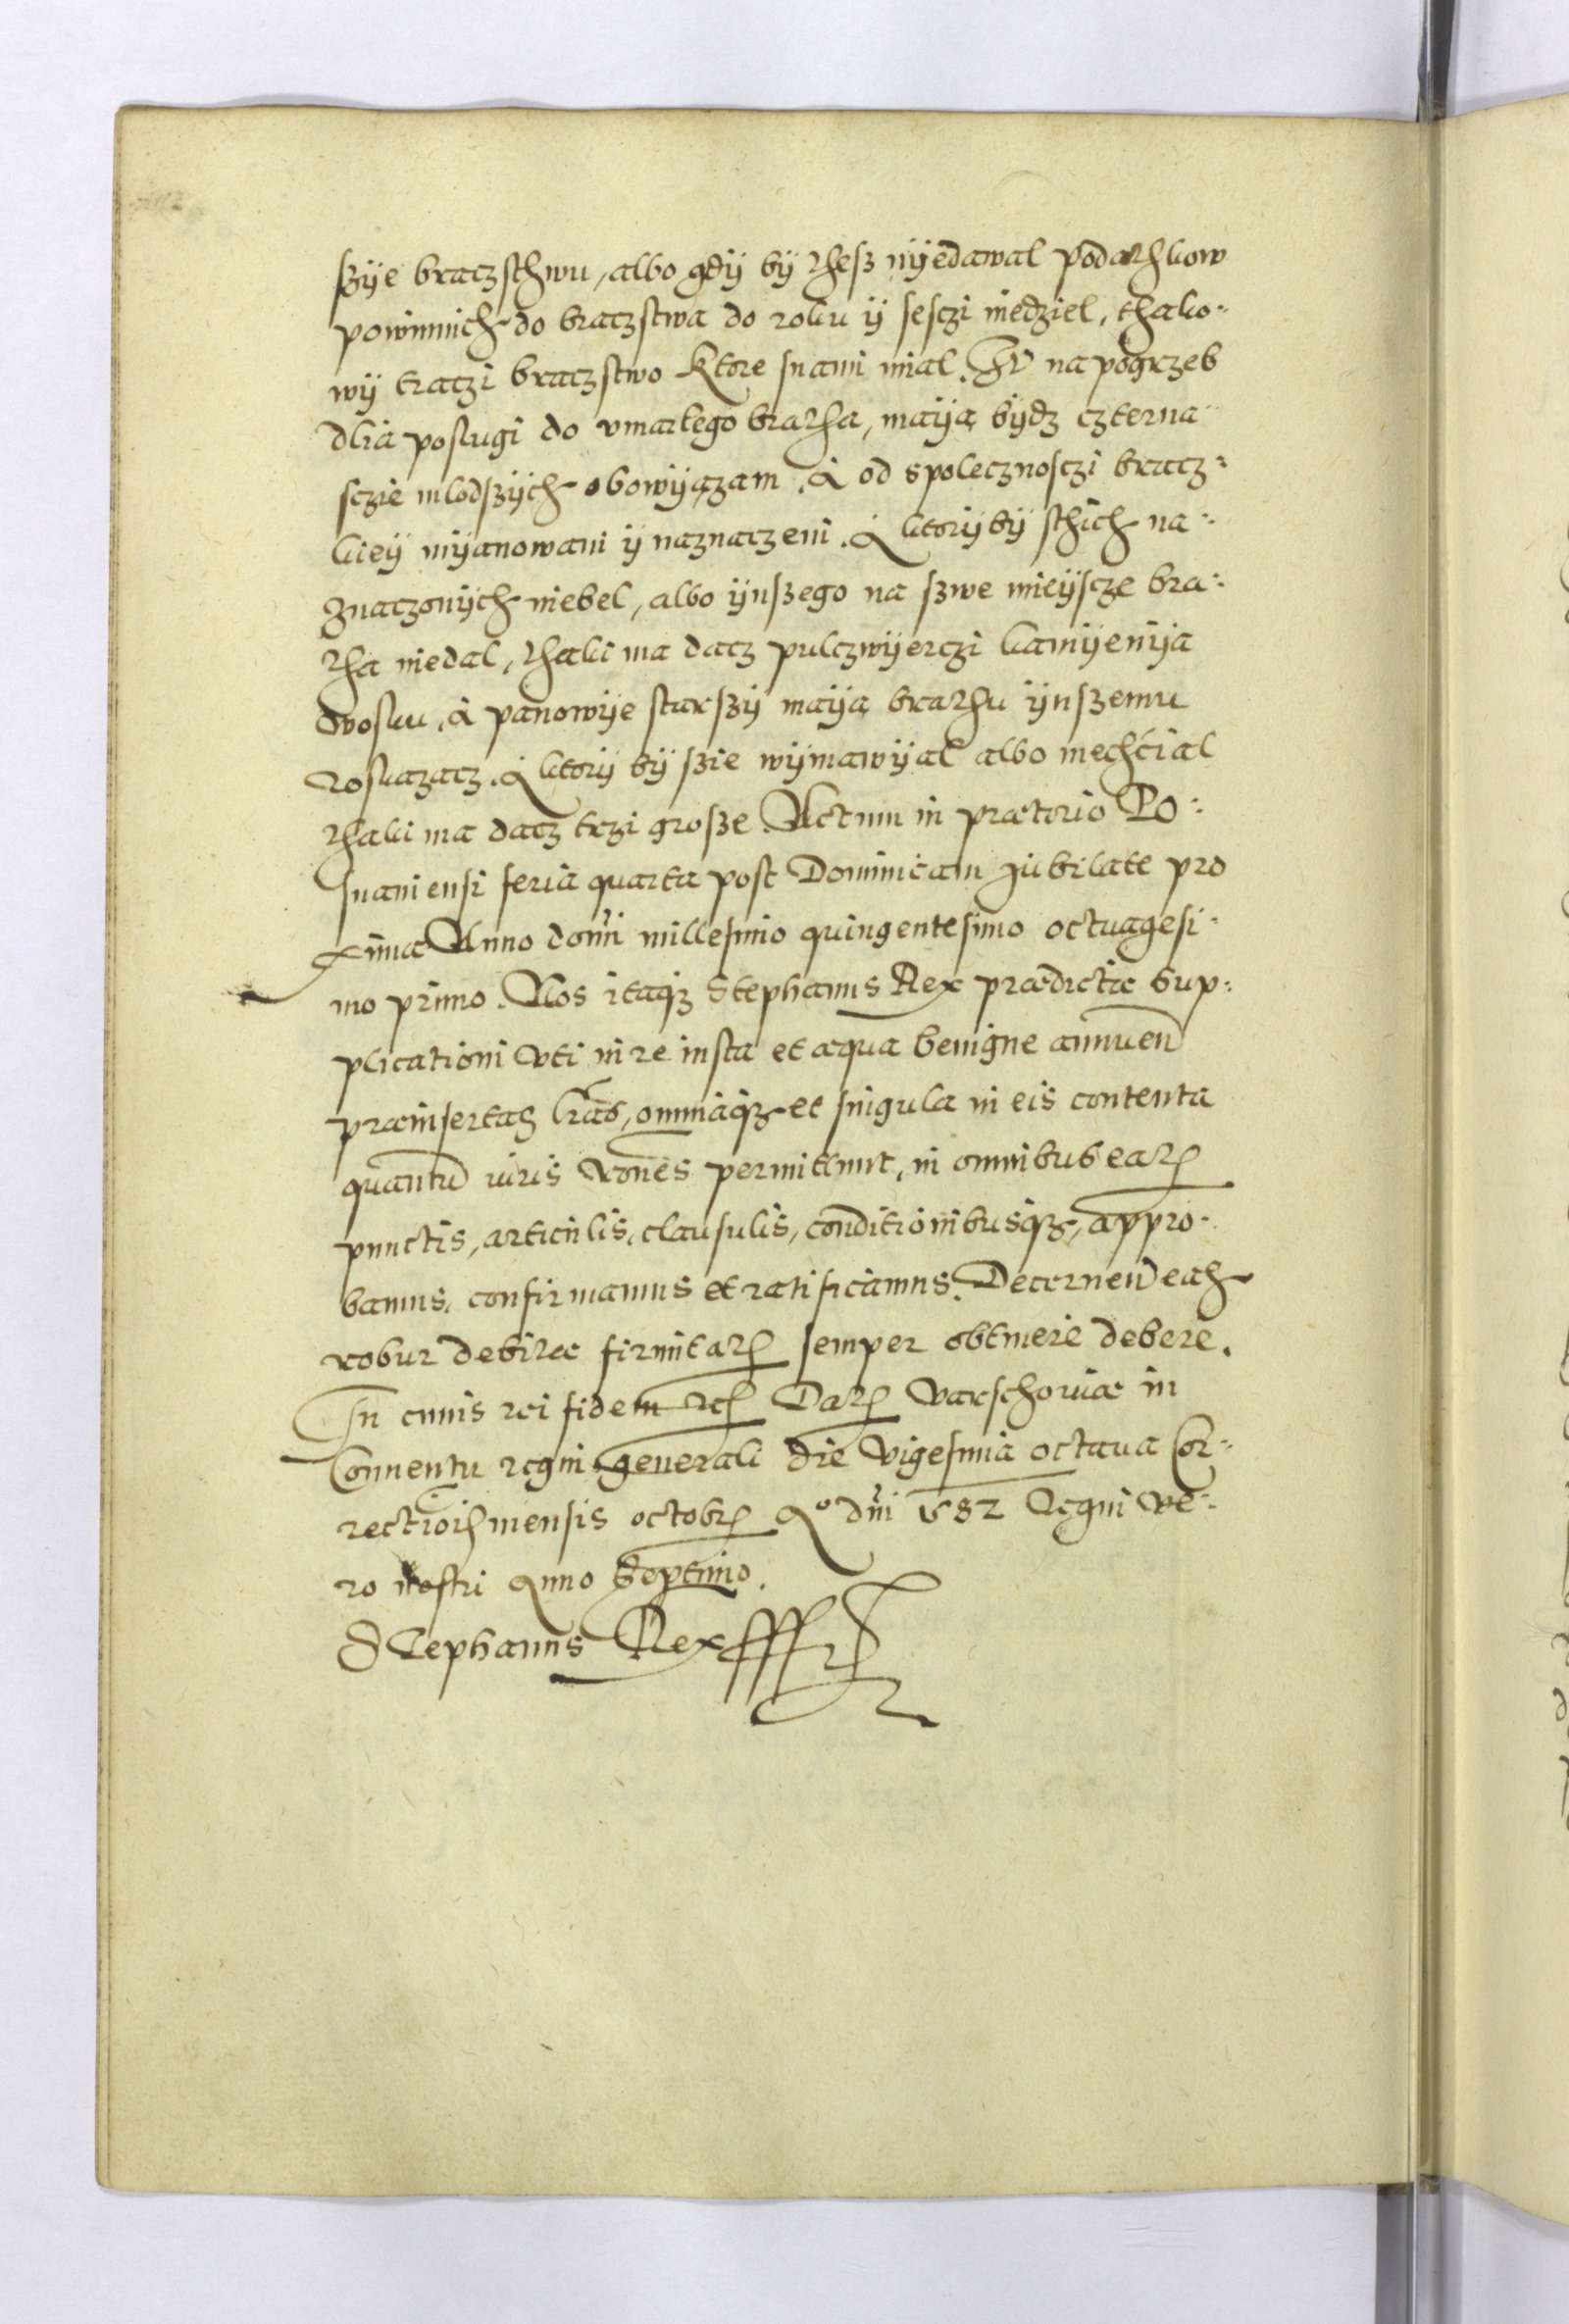 szÿe braczsthwu, albo gdÿ bÿ thesz nÿedawal podathkow
powinnich do braczstwa do roku ÿ sesczi niedziel, thako-
wÿ traczi braczstwo ktore snami mial. Thu na pogrzeb
dlia poslugi do vmarlego bratha, maÿą bÿdz czterna-
sczie mlodszÿch obowÿązani. A od spolecznosczi bracz-
kieÿ mÿanowani ÿ naznaczeni. A ktorÿ bÿ sthich na-
znaczonÿch niebel, albo ÿnszego na szwe mieÿscze bra-
tha niedal, thaki ma dacz pulczwÿerczi kamÿenÿa
wosku, a panowÿe starszÿ maÿą brathu ÿnszemu
roskazacz. A ktorÿ bÿ szie wÿmawÿal albo niechcial
thaki ma dacz trzi grosze. Actum in prætorio Po-
snaniensi feria quarta post Dominicam Jubilate pro
xima Anno domi millesimo quingentesimo octuagesi-
mo primo. Nos itaqz Stephanus Rex prædictæ sup-
plicationi vti in re iusta et æqua benigne annuen
præinsertas lras, omniaqz et singula in eis contenta
quantu iuris rones permittunt, in omnibus earz
punctis, articulis, clausulis, conditionibusqz, appro-
bamus, confirmamus et ratificamus. Decernen eas
robur debitæ firmitatz semper obtinere debere.
In cuius rei fidem etc. Datz Varschoviæ in
Conuentu regni generali die vigesima octaua Cor-
rectiois mensis octobrz Ao dni 1582 Regni ve-
ro nostri Anno Septimo.
Stephanus Rex